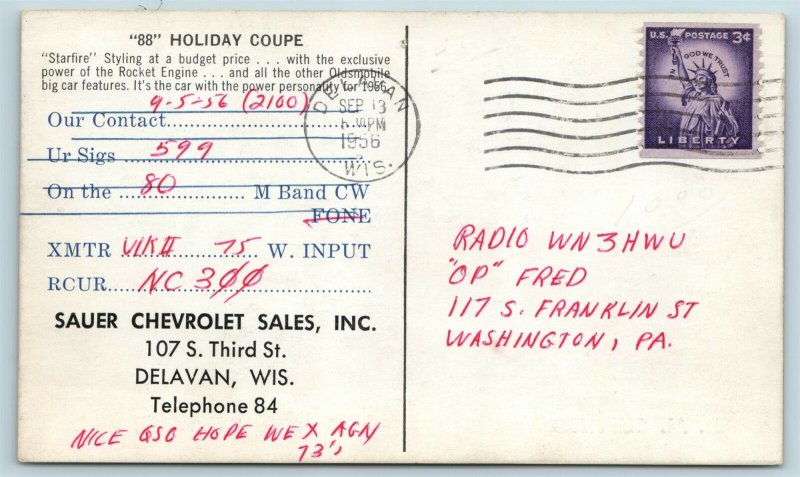 "88" HOLIDAY COUPE
"Starfire" Styling at a budget price . . . with the exclusive
power of the Rocket Engine . . . and all the other Oldsmobile
big car features. It's the car with the power personality for 1956.
9-5-56 (2100)
Our Contact
Ur Sigs 599
On the 80 M Band CW
FONE
XMTR VIK II 75 W. INPUT
RCUR NC 300
SAUER CHEVROLET SALES, INC.
107 S. Third St.
DELAVAN, WIS.
Telephone 84
NICE QSO HOPE WE X AGN
73's
DELAVAN
SEP 13
PM
1956
WIS.
U.S. POSTAGE 3¢
IN GOD WE TRUST
LIBERTY
RADIO WN3HWU
"OP" FRED
117 S. FRANKLIN ST
WASHINGTON, PA.